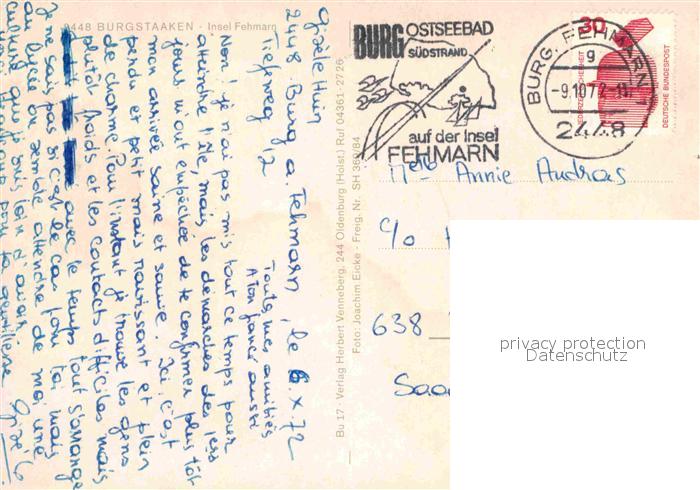 2448 BURGSTAAKEN - Insel Fehmarn
Gisèle Huin
2448. Burg a. Fehmarn, le 6 X 72
Tiefeweg 12
Toutes mes amitiés
à ton fiancé aussi
Non, je n'ai pas mis tout ce temps pour
atteindre l'île, mais les démarches des 1ers
jours m'ont empêchée de te confirmer plus tôt
mon arrivée saine et sauve. Ici, c'est
perdu et petit mais ravissant et plein
de charme. Pour l'instant je trouve les gens
plutôt froids et les contacts difficiles mais
avec le temps tout s'arrange
Je ne sais pas si c'est le cas pour toi mais
au lycée on semble attendre de moi une
culture que je suis loin d'avoir.
pour ta gentillesse
Bu 17 · Verlag Herbert Venneberg, 244 Oldenburg (Holst.), Ruf 04361-2726
Foto: Joachim Eicke - Freig. Nr. SH 369/84
BURG OSTSEEBAD
SÜDSTRAND
auf der Insel
FEHMARN
BURG, FEHMARN 1
g
-9.10.72-11
2448
30
JEDERZEIT SICHERHEIT
DEUTSCHE BUNDESPOST
Melle Annie Audras
c/o
638
Saa
privacy protection
Datenschutz